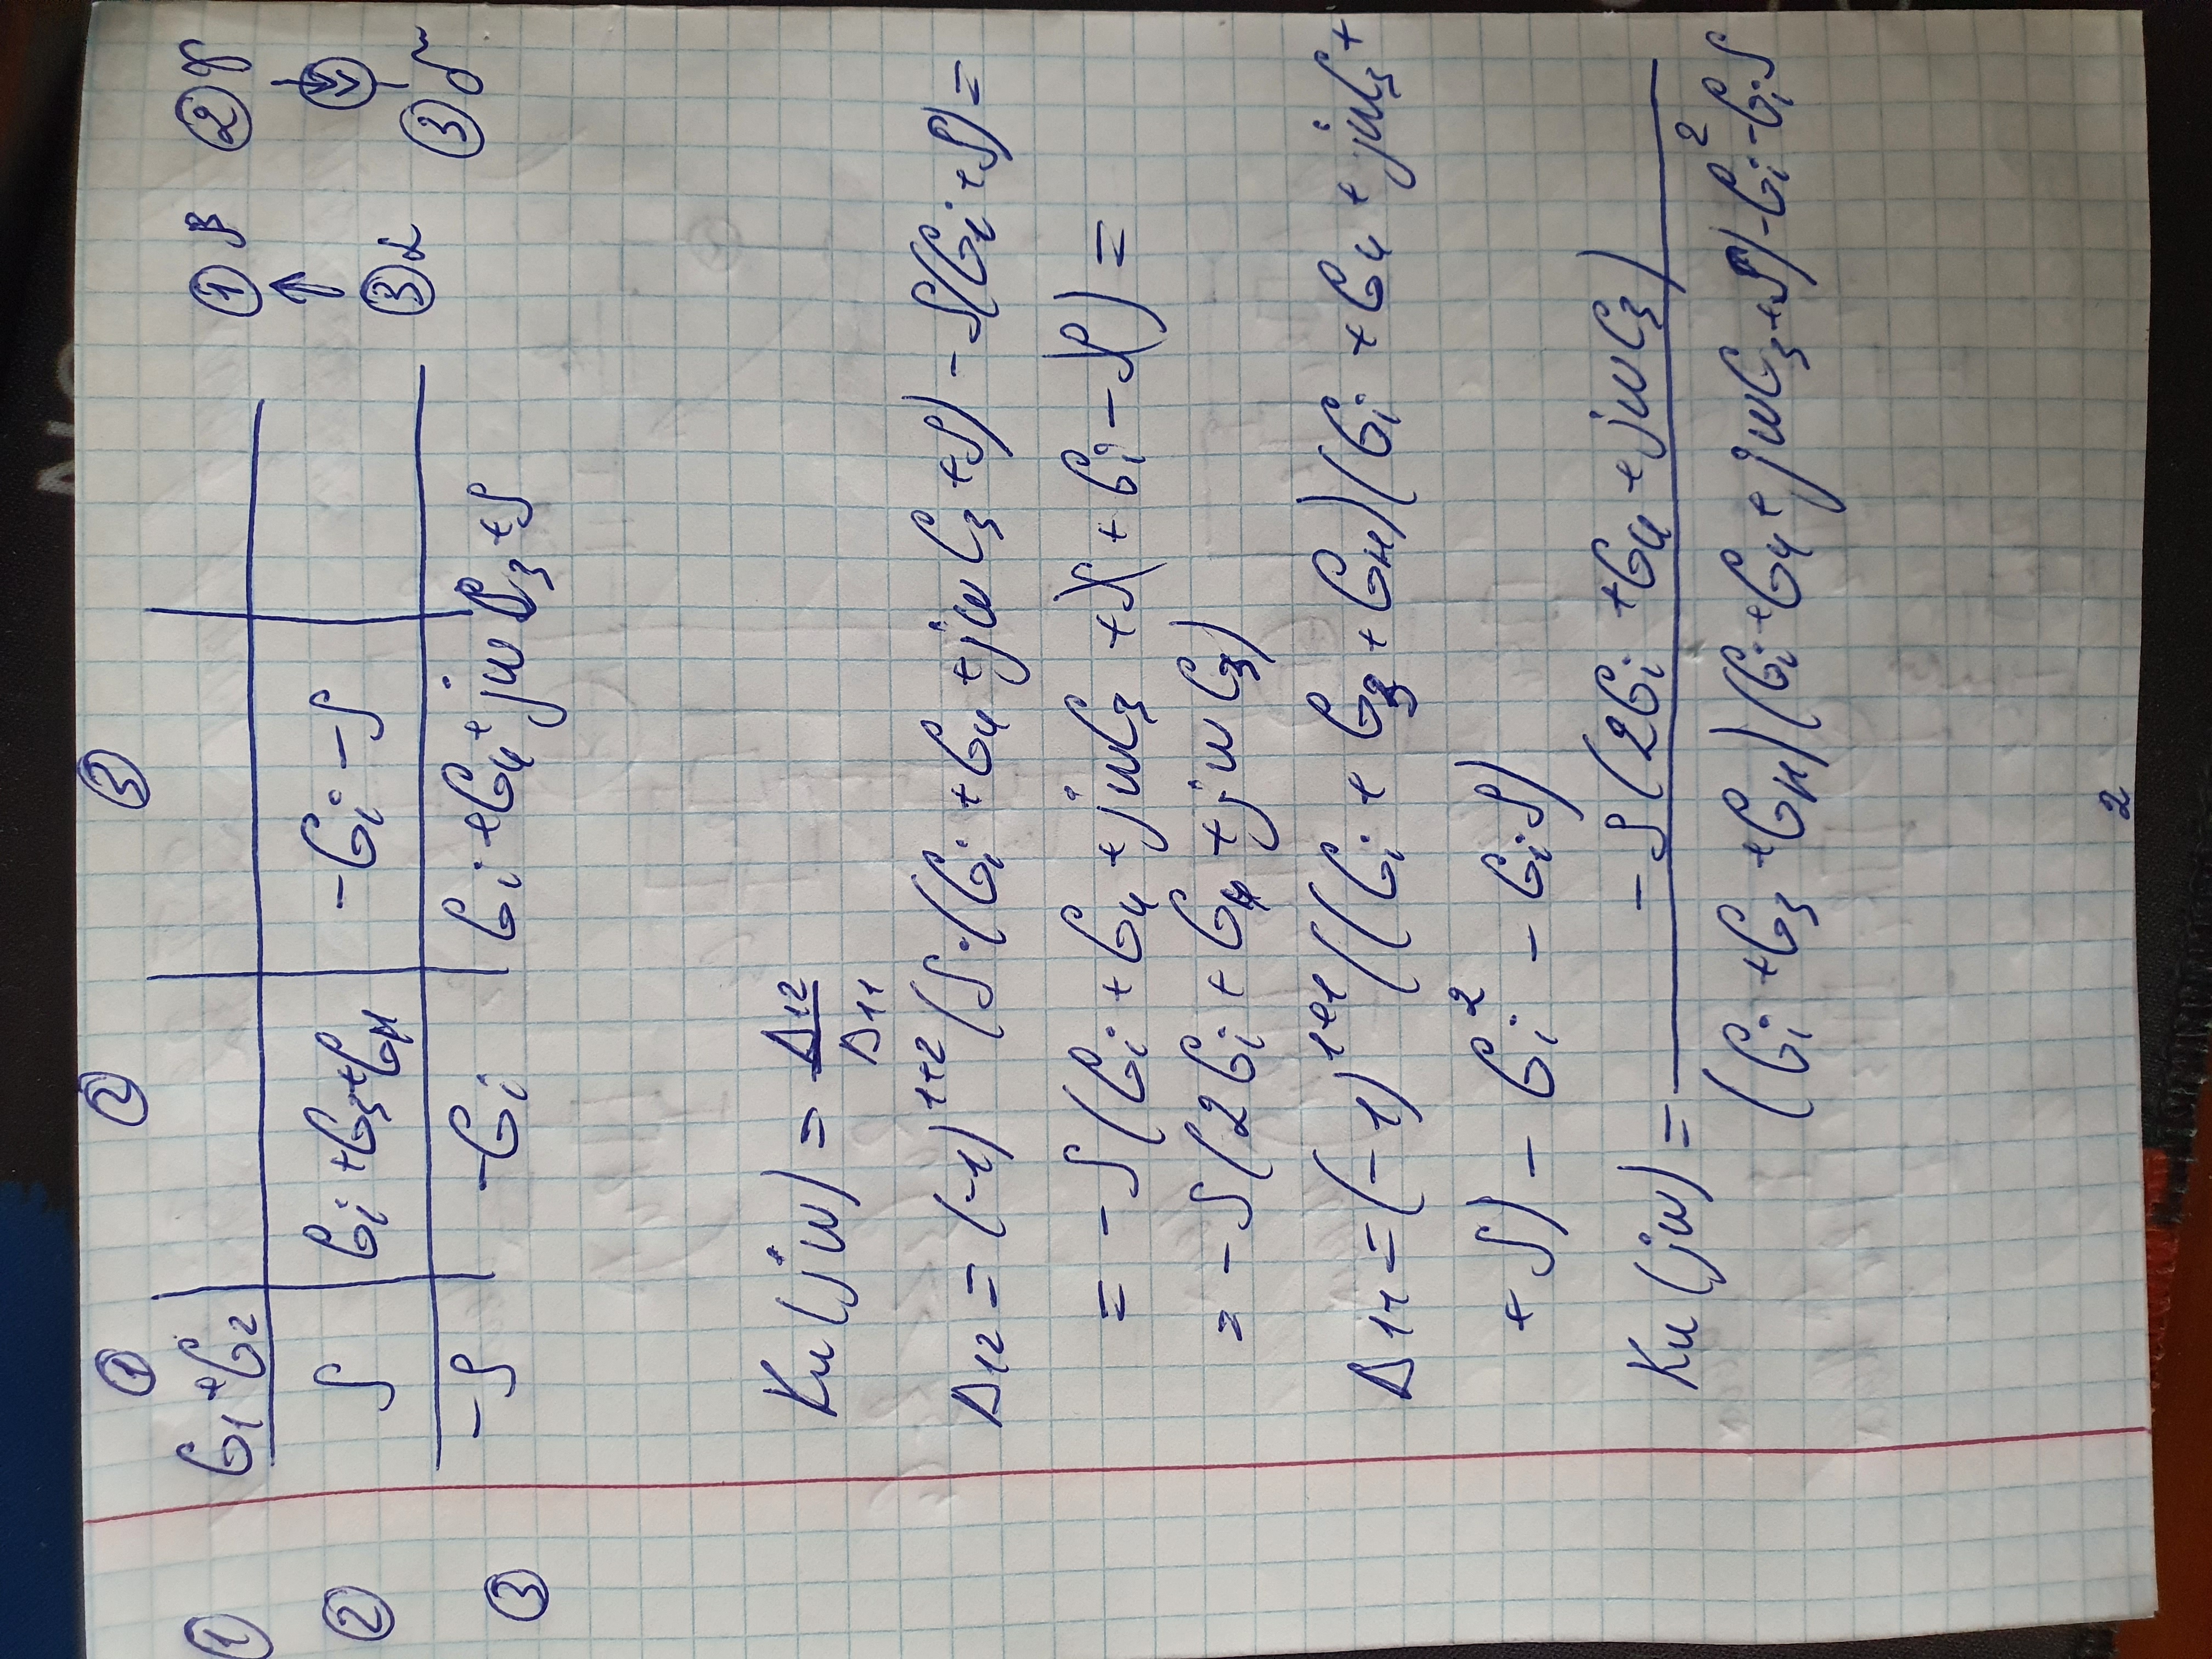 ① ② ③
① G₁+G₂ ① β ② γ
② S Gi+G₃+Gн -Gi-S ③ α ③ δ
③ -S -Gi Gi+G₄+jωC₃+S
Ku(jω) = Δ₁₂/Δ₁₁
Δ₁₂ = (-1)¹⁺²(S·(Gi+G₄+jωC₃+S) - S(Gi+S) =
= -S(Gi+G₄+jωC₃+S+Gi-S) =
= -S(2Gi+G₄+jωC₃)
Δ₁₁ = (-1)¹⁺¹((Gi+G₃+Gн)(Gi+G₄+jωC₃+
+S) - Gi² - GiS)
Ku(jω) = -S(2Gi+G₄+jωC₃)
(Gi+G₃+Gн)(Gi+G₄+jωC₃+S)-Gi²-GiS
2